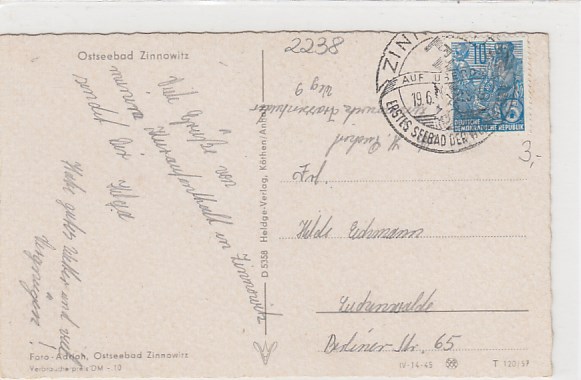 Ostseebad Zinnowitz
2238
ZINN
AUF USEDOM
19.6.
ERSTES SEEBAD DER
10
5
DEUTSCHE
DEMOKRATISCHE REPUBLIK
3,-
Viele Grüße von
Kuraufenthalt in
Zinnowitz
sendet Dir
Habe gutes Wetter und viel
Vergnügen!
Weg 9
Frl.
Hilde Eichmann
Luckenwalde
Berliner Str. 65
D 5358 Heldge-Verlag, Köthen/Anhalt
Foto-Adrian, Ostseebad Zinnowitz
Verbraucherpreis DM -.10
IV-14-45
T 120/57